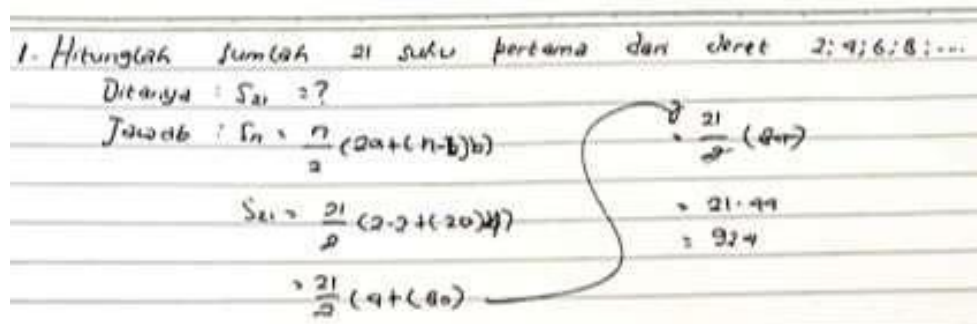 1. Hitunglah Jumlah 21 suku pertama dari deret 2; 4; 6; 8; ...
Ditanya : S₂₁ = ?
Jawab : Sn = n/2 (2a+(n-1)b)
S₂₁ = 21/2 (2.2+(20)4)
= 21/2 (4+(80)
= 21/2 (84)
= 21.44
= 924